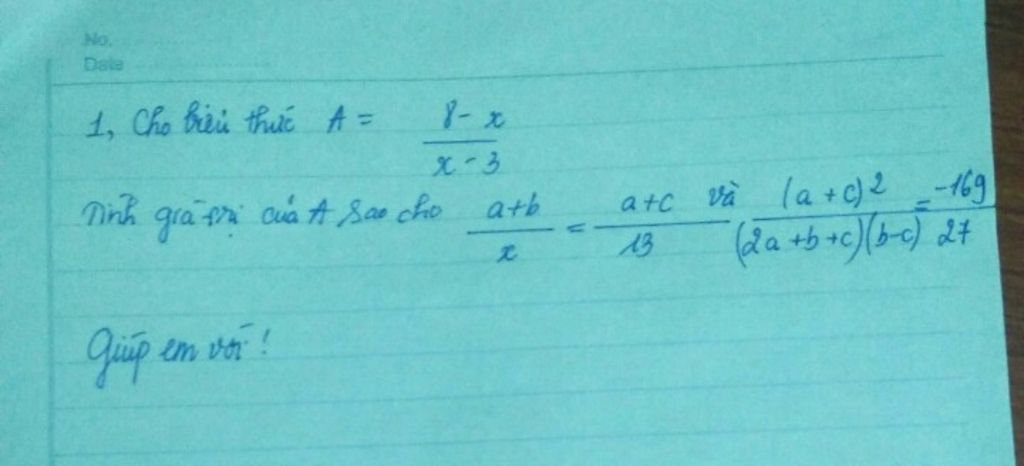 No.
Date
1, Cho biểu thức A = \frac{8-x}{x-3}
Tính giá trị của A sao cho \frac{a+b}{x} = \frac{a+c}{13} và \frac{(a+c)^2}{(2a+b+c)(b-c)} = \frac{-169}{27}
Giúp em với!